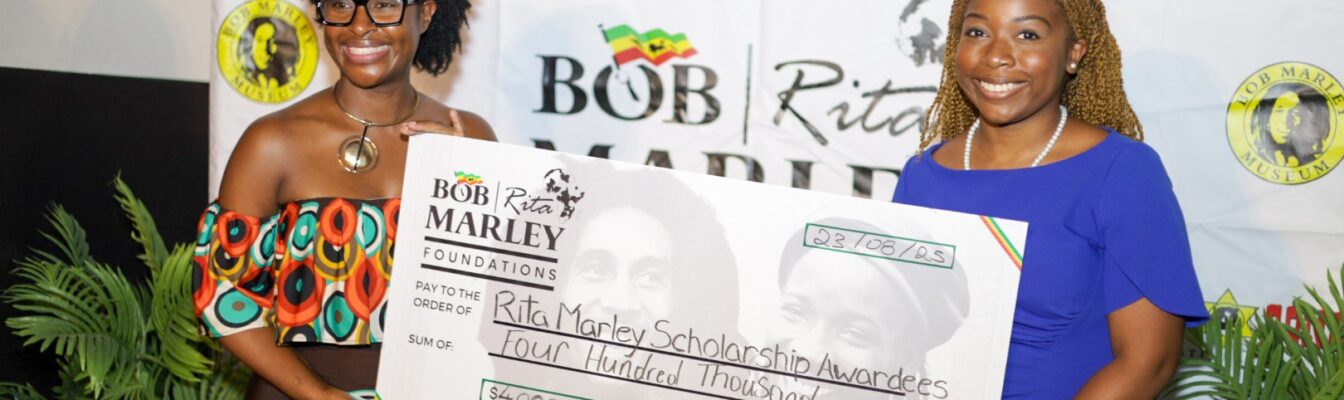 BOB MARLEY
MUSEUM
BOB | Rita
MARLEY
BOB MARLEY
MUSEUM
BOB | Rita
MARLEY
FOUNDATIONS
23/08/25
PAY TO THE
ORDER OF
Rita Marley Scholarship Awardees
SUM OF:
Four Hundred Thousand